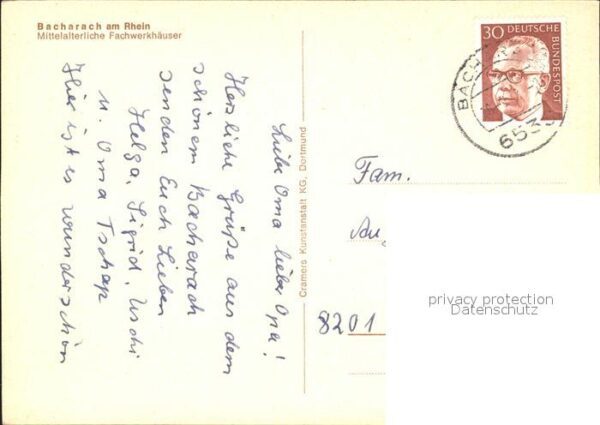 Bacharach am Rhein
Mittelalterliche Fachwerkhäuser
Liebe Oma lieber Opa!
Herzliche Grüße aus dem
schönem Bacharach
senden Euch Lieben
Helga, Sigrid, Uschi
u. Oma Tschap
Hier ist es wunderschön
Cramers Kunstanstalt KG, Dortmund
30 DEUTSCHE BUNDESPOST
BACH
6533
Fam.
8201
privacy protection
Datenschutz